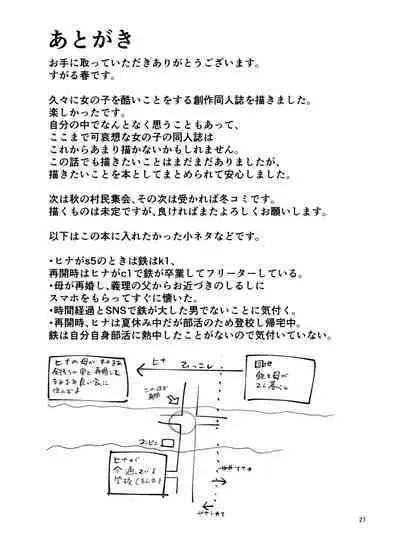 あとがき
お手に取っていただきありがとうございます。
すがる春です。
久々に女の子を酷いことをする創作同人誌を描きました。
楽しかったです。
自分の中でなんとなく思うこともあって、
ここまで可哀想な女の子の同人誌は
これからあまり描かないかもしれません。
この話でも描きたいことはまだまだありましたが、
描きたいことを本としてまとめられて安心しました。
次は秋の村民集会、その次は受かれば冬コミです。
描くものは未定ですが、良ければまたよろしくお願いします。
以下はこの本に入れたかった小ネタなどです。
・ヒナがs5のときは鉄はk1、
再開時はヒナがc1で鉄が卒業してフリーターしている。
・母が再婚し、義理の父からお近づきのしるしに
スマホをもらってすぐに懐いた。
・時間経過とSNSで鉄が大した男でないことに気付く。
・再開時、ヒナは夏休み中だが部活のため登校し帰宅中。
鉄は自分自身部活に熱中したことがないので気付いていない。
ヒナの母が
ヒナ
コンビニ
ヒナが
27